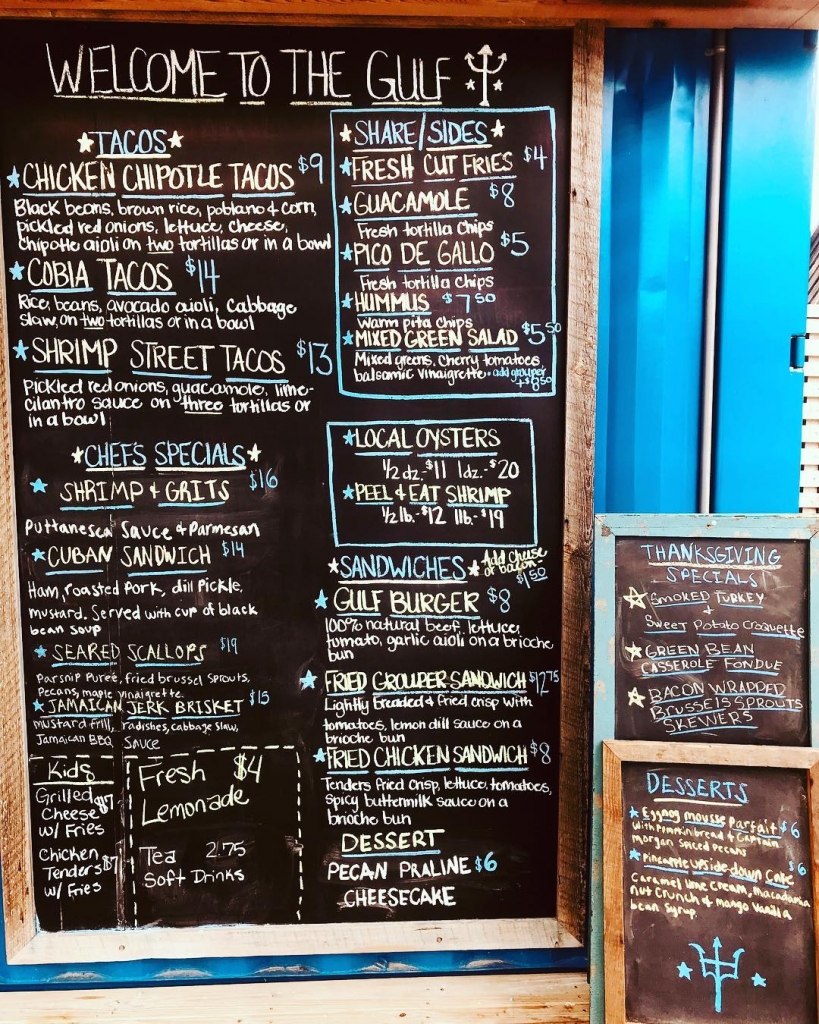 WELCOME TO THE GULF
TACOS
CHICKEN CHIPOTLE TACOS $9
Black beans, brown rice, poblano & corn,
pickled red onions, lettuce, cheese,
chipotle aioli on two tortillas or in a bowl
COBIA TACOS $14
Rice, beans, avocado aioli, cabbage
slaw, on two tortillas or in a bowl
SHRIMP STREET TACOS $13
Pickled red onions, guacamole, lime-
cilantro sauce on three tortillas or
in a bowl
CHEF'S SPECIALS
SHRIMP & GRITS $16
Puttanesca Sauce & Parmesan
CUBAN SANDWICH $14
Ham, roasted Pork, dill Pickle,
mustard. Served with cup of black
bean soup
SEARED SCALLOPS $19
Parsnip Puree, fried brussel sprouts,
Pecans, maple vinaigrette.
JAMAICAN JERK BRISKET $15
mustard frill, radishes, cabbage slaw,
Jamaican BBQ Sauce
Kids
Grilled
Cheese $7
w/ Fries
Chicken
Tenders $7
w/ Fries
Fresh $4
Lemonade
Tea 2.75
Soft Drinks
SHARE/SIDES
FRESH CUT FRIES $4
GUACAMOLE $8
Fresh tortilla chips
PICO DE GALLO $5
Fresh tortilla chips
HUMMUS $7 50
Warm pita chips
MIXED GREEN SALAD $5 50
Mixed greens, cherry tomatoes,
balsamic vinaigrette. add grouper
+$8 50
LOCAL OYSTERS
1/2 dz.-$11 1dz.-$20
PEEL & EAT SHRIMP
1/2 lb.-$12 1lb.-$19
SANDWICHES Add cheese
or bacon-
$1 50
GULF BURGER $8
100% natural beef, lettuce,
tomato, garlic aioli on a brioche
bun
FRIED GROUPER SANDWICH $12 75
Lightly breaded & fried crisp with
tomatoes, lemon dill sauce on a
brioche bun
FRIED CHICKEN SANDWICH $8
Tenders fried crisp, lettuce, tomatoes,
spicy buttermilk sauce on a
brioche bun
DESSERT
PECAN PRALINE $6
CHEESECAKE
THANKSGIVING
SPECIALS
SMOKED TURKEY
+
Sweet Potato Croquette
GREEN BEAN
CASSEROLE FONDUE
BACON WRAPPED
BRUSSELS SPROUTS
SKEWERS
DESSERTS
Eggnog mousse Parfait $6
with Pumpkinbread & Captain
morgan spiced Pecans
Pineapple upside down Cake $6
Caramel lime Cream, macadamia
nut Crunch & mango Vanilla
bean syrup